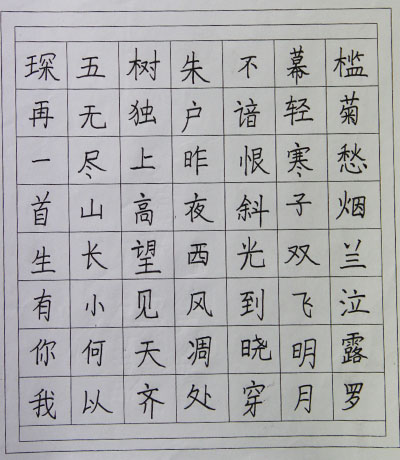 槛菊愁烟兰泣露罗
幕轻寒子双飞明月
不谙恨斜光到晓穿
朱户昨夜西风凋处
树独上高望见天齐
五无尽山长小何以
琛再一首生有你我